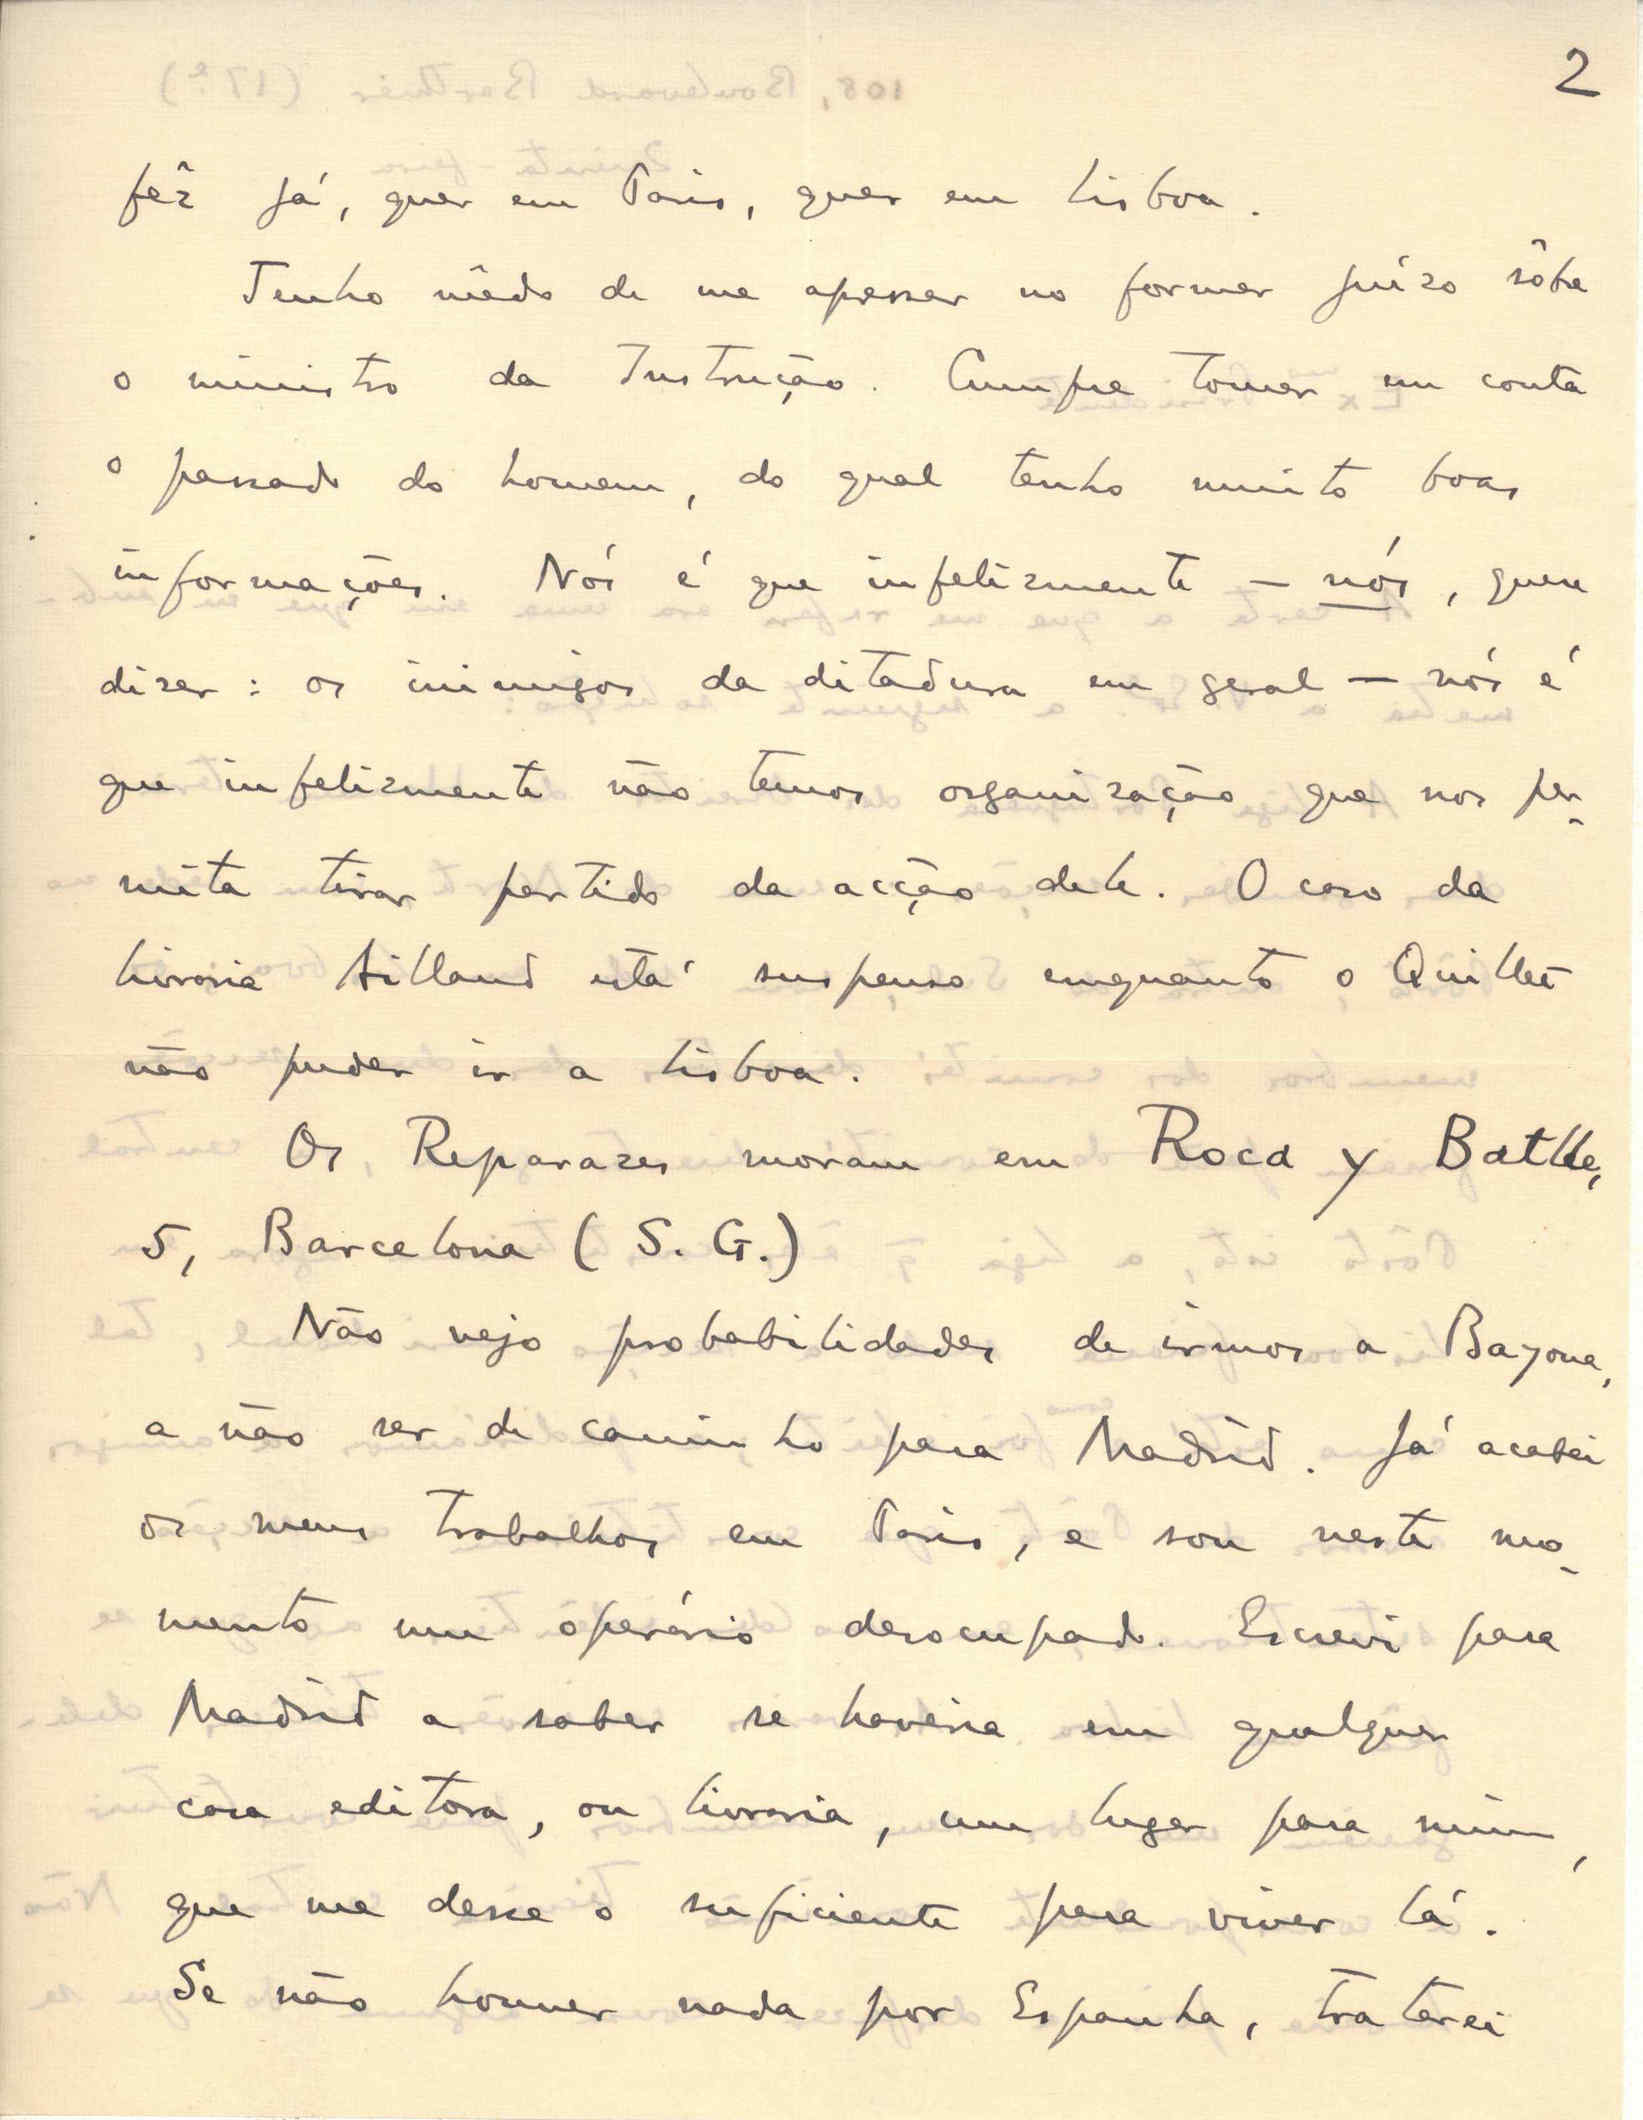 2
fêz já, quer em Paris, quer em Lisboa.
Tenho mêdo de me apressar no formar juízo sôbre
o ministro da Instrução. Cumpre tomar em conta
o passado do homem, do qual tenho muito boas
informações. Nós é que infelizmente — nós, quere
dizer: os inimigos da ditadura em geral — nós é
que infelizmente não temos organização que nos per-
mita tirar partido da acção dele. O caso da
livraria Aillaud está suspenso enquanto o Quillet
não puder ir a Lisboa.
Os Reparazes moram em Roca y Batlle,
5, Barcelona (S. G.)
Não vejo probabilidades de irmos a Bayona,
a não ser de caminho para Madrid. Já acabei
os meus trabalhos em Paris, e sou neste mo-
mento um operário desocupado. Escrevi para
Madrid a saber se haveria em qualquer
casa editora, ou livraria, um lugar para mim,
que me desse o suficiente para viver lá.
Se não houver nada por Espanha, tratarei